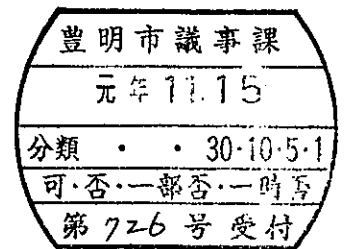 豊明市議事課
元年11.15
分類 ・ ・ 30・10・5・1
可・否・一部否・一時否
第726号受付